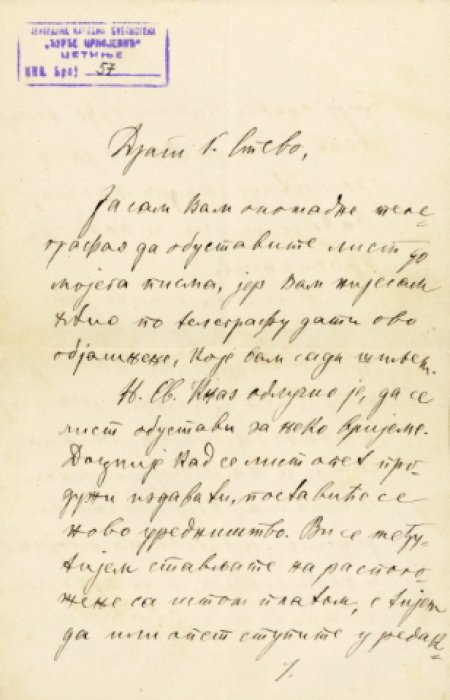 ЦЕНТРАЛНА НАРОДНА БИБЛИОТЕКА
„ЂУРЂЕ ЦРНОЈЕВИЋ“
ЦЕТИЊЕ
ИНВ. Број 57
Драги г. Стево,
Ја сам Вам ономадне теле-
графао да обуставите лист до
мојега писма, јер Вам нијесам
хтио по телеграфу дати ово
објашњење, које вам сади шиљем.
Њ. Св. Књаз одлучио је, да се
лист обустави за неко вријеме.
Доцније кад се лист опет про-
дужи издавати, поставиће се
ново уредништво. Ви се међу-
тијем стављате на располо-
жење са истом платом, с тијем
да или опет ступите у редак-